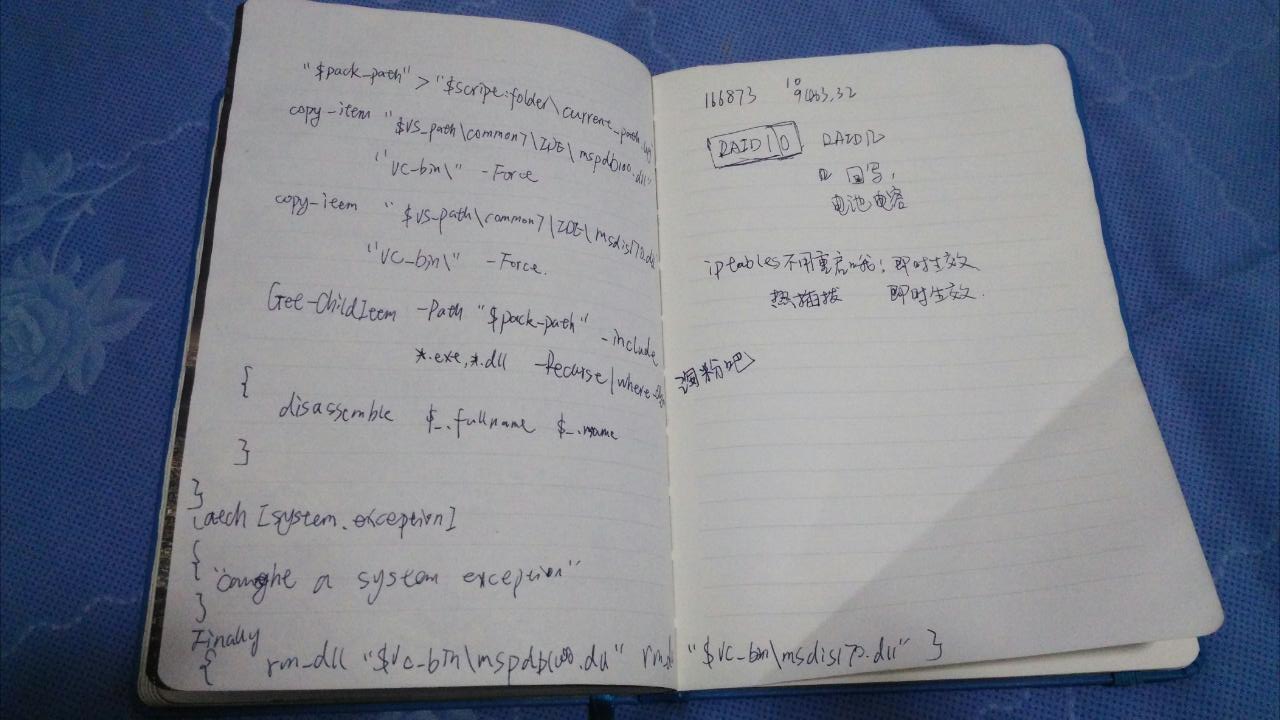 "$pack_path" > "$script:folder\current_path.
copy-item "$VS_path\common7\IDE\mspdb100.dll"
"VC-bin\" -Force
copy-item "$VS_path\common7\IDE\msdis170.dll
"VC_bin\" -Force.
Get-ChildItem -Path "$pack-path" -include
*.exe,*.dll -Recurse | where
{
disassemble $_.fullname $_.name
}
}
catch [system.exception]
{
"caught a system exception"
}
Finally
{ rm_dll "$vc_bin\mspdb100.dll" rm "$vc_bin\msdis170.dll" }
166873 10
RAID10 RAID
回写,
电池电容
iptables不用重启 即时生效
热插拔 即时生效.
粉吧